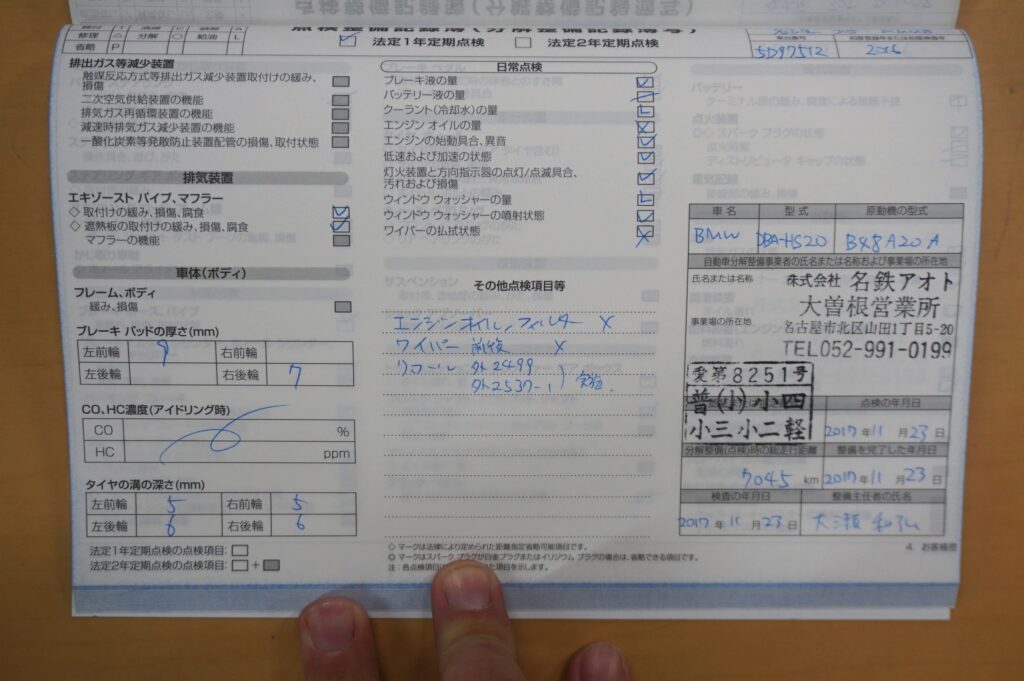 点検整備記録簿(分解整備記録簿写)
修理 △ 分解 ○ 給油 L
省略 P
法定1年定期点検 法定2年定期点検
車台番号
5D97512 2016
排出ガス等減少装置
触媒反応方式等排出ガス減少装置取付けの緩み、
損傷
二次空気供給装置の機能
排気ガス再循環装置の機能
減速時排気ガス減少装置の機能
一酸化炭素等発散防止装置配管の損傷、取付状態
排気装置
エキゾースト パイプ、マフラー
◇ 取付けの緩み、損傷、腐食
◇ 遮熱板の取付けの緩み、損傷、腐食
マフラーの機能
車体(ボディ)
フレーム、ボディ
緩み、損傷
ブレーキ パッドの厚さ(mm)
左前輪 9 右前輪
左後輪 右後輪 7
CO、HC濃度(アイドリング時)
CO %
HC ppm
タイヤの溝の深さ(mm)
左前輪 5 右前輪 5
左後輪 6 右後輪 6
法定1年定期点検の点検項目:
法定2年定期点検の点検項目: +
日常点検
ブレーキ液の量
バッテリー液の量
クーラント(冷却水)の量 L
エンジン オイルの量 X
エンジンの始動具合、異音
低速および加速の状態
灯火装置と方向指示器の点灯/点滅具合、
汚れおよび損傷
ウィンドウ ウォッシャーの量 L
ウィンドウ ウォッシャーの噴射状態
ワイパーの払拭状態 X
その他点検項目等
エンジンオイル、フィルター X
ワイパー 前後 X
リコール 外2499
外2537-1 実施
◇ マークは法律により定められた距離指定省略可能項目です。
◎ マークはスパーク プラグが白金プラグまたはイリジウム プラグの場合は、省略できる項目です。
注:各点検項目
項目を示します。
車名 型式 原動機の型式
BMW DBA-HS20 B48A20A
自動車分解整備事業者の氏名または名称および事業場の所在地
氏名または名称 株式会社 名鉄アオト
大曽根営業所
事業場の所在地 名古屋市北区山田1丁目5-20
TEL052-991-0199
愛第8251号
普(小)小四
小三小二軽
点検の年月日
2017年11月23日
分解整備(点検)時の総走行距離 整備を完了した年月日
7045 km 2017年11月23日
検査の年月日 整備主任者の氏名
2017年11月23日
4. お客様控